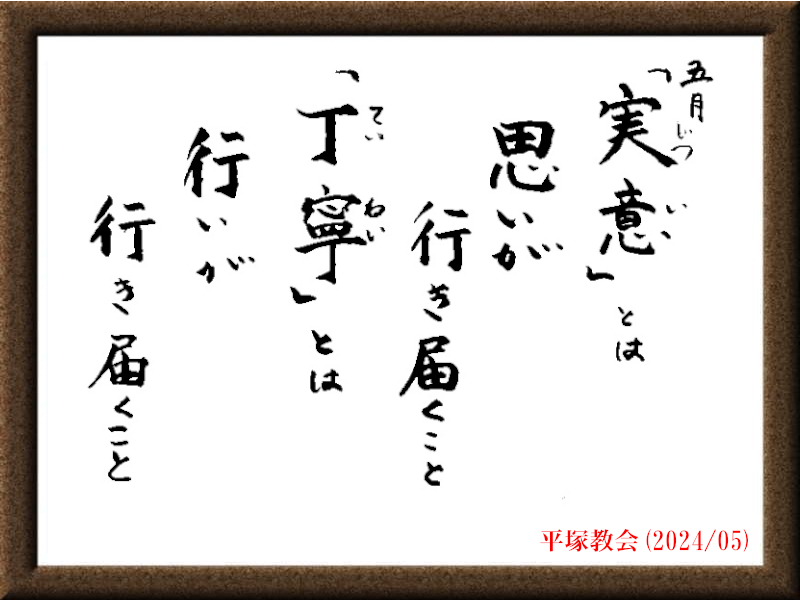 五月
「実意」とは
じつ
いい
思いが
行き届くこと
「丁寧」とは
てい
ねい
行いが
行き届くこと
平塚教会(2024/05)